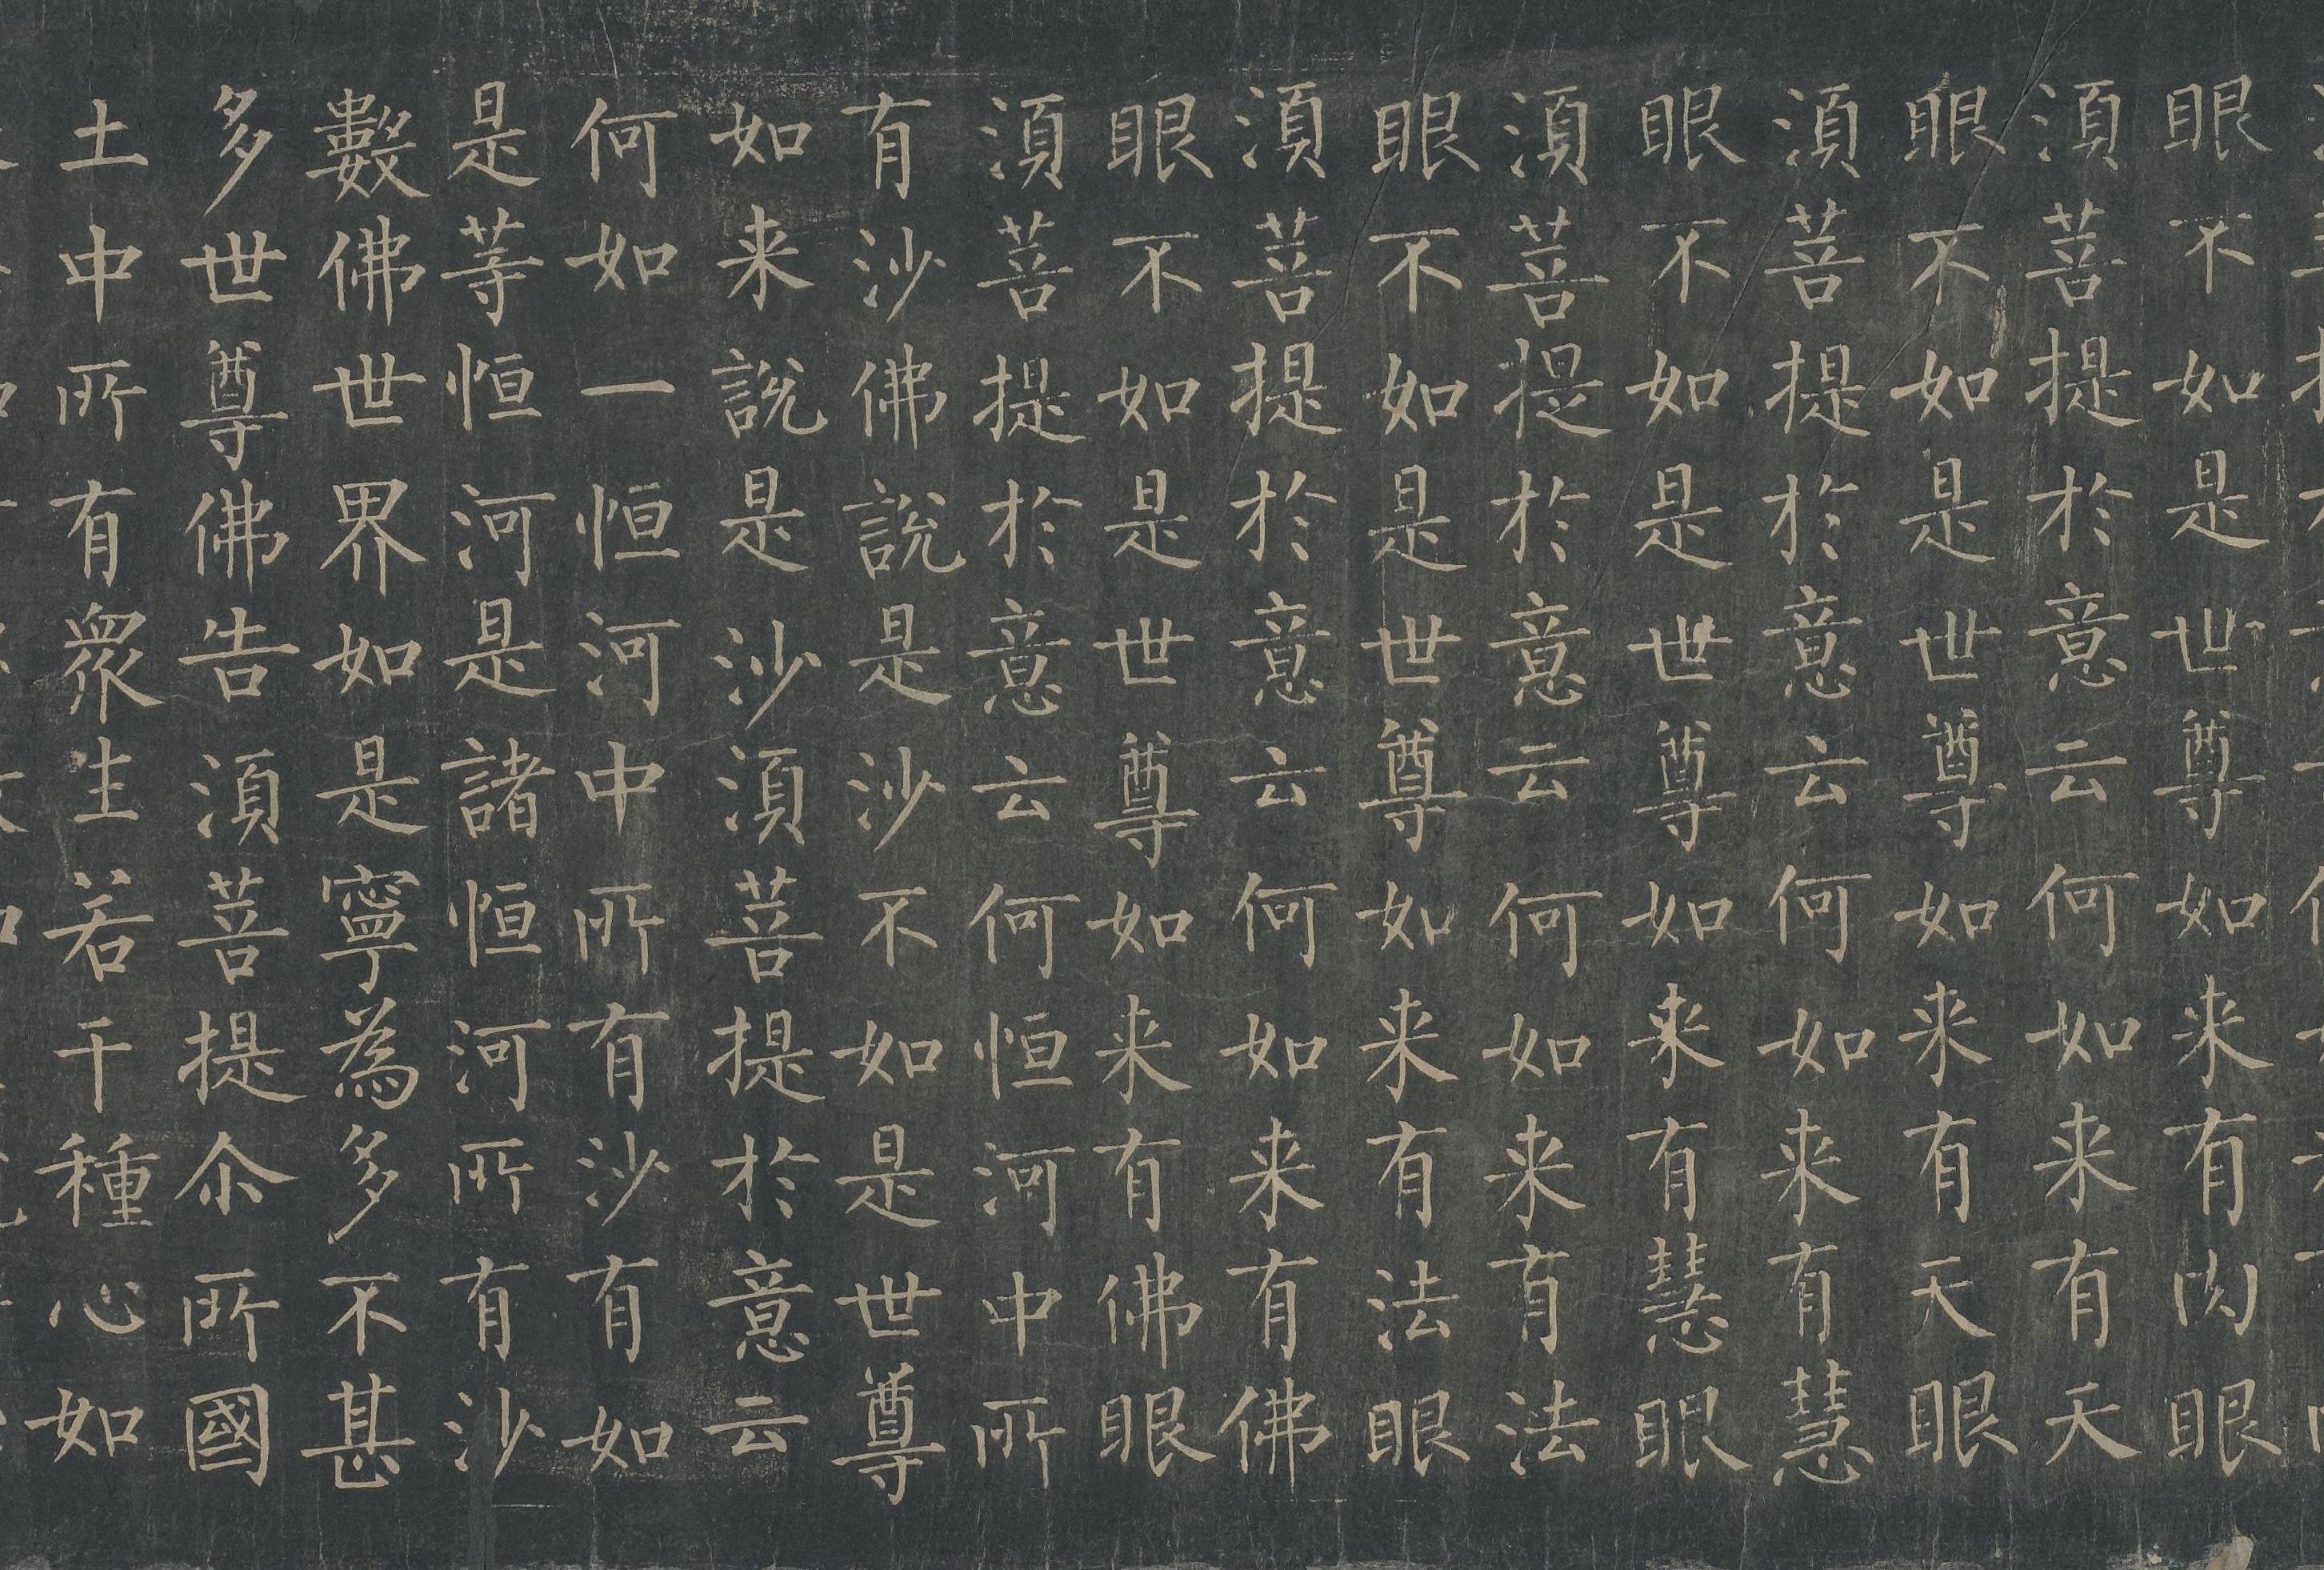 眼不如是世尊如来有肉眼
須菩提於意云何如来有天
眼不如是世尊如来有天眼
須菩提於意云何如来有慧
眼不如是世尊如来有慧眼
須菩提於意云何如来有法
眼不如是世尊如来有法眼
須菩提於意云何如来有佛
眼不如是世尊如来有佛眼
須菩提於意云何恒河中所
有沙佛說是沙不如是世尊
如来說是沙須菩提於意云
何如一恒河中所有沙有如
是等恒河是諸恒河所有沙
數佛世界如是寧為多不甚
多世尊佛告須菩提尒所國
土中所有衆生若干種心如